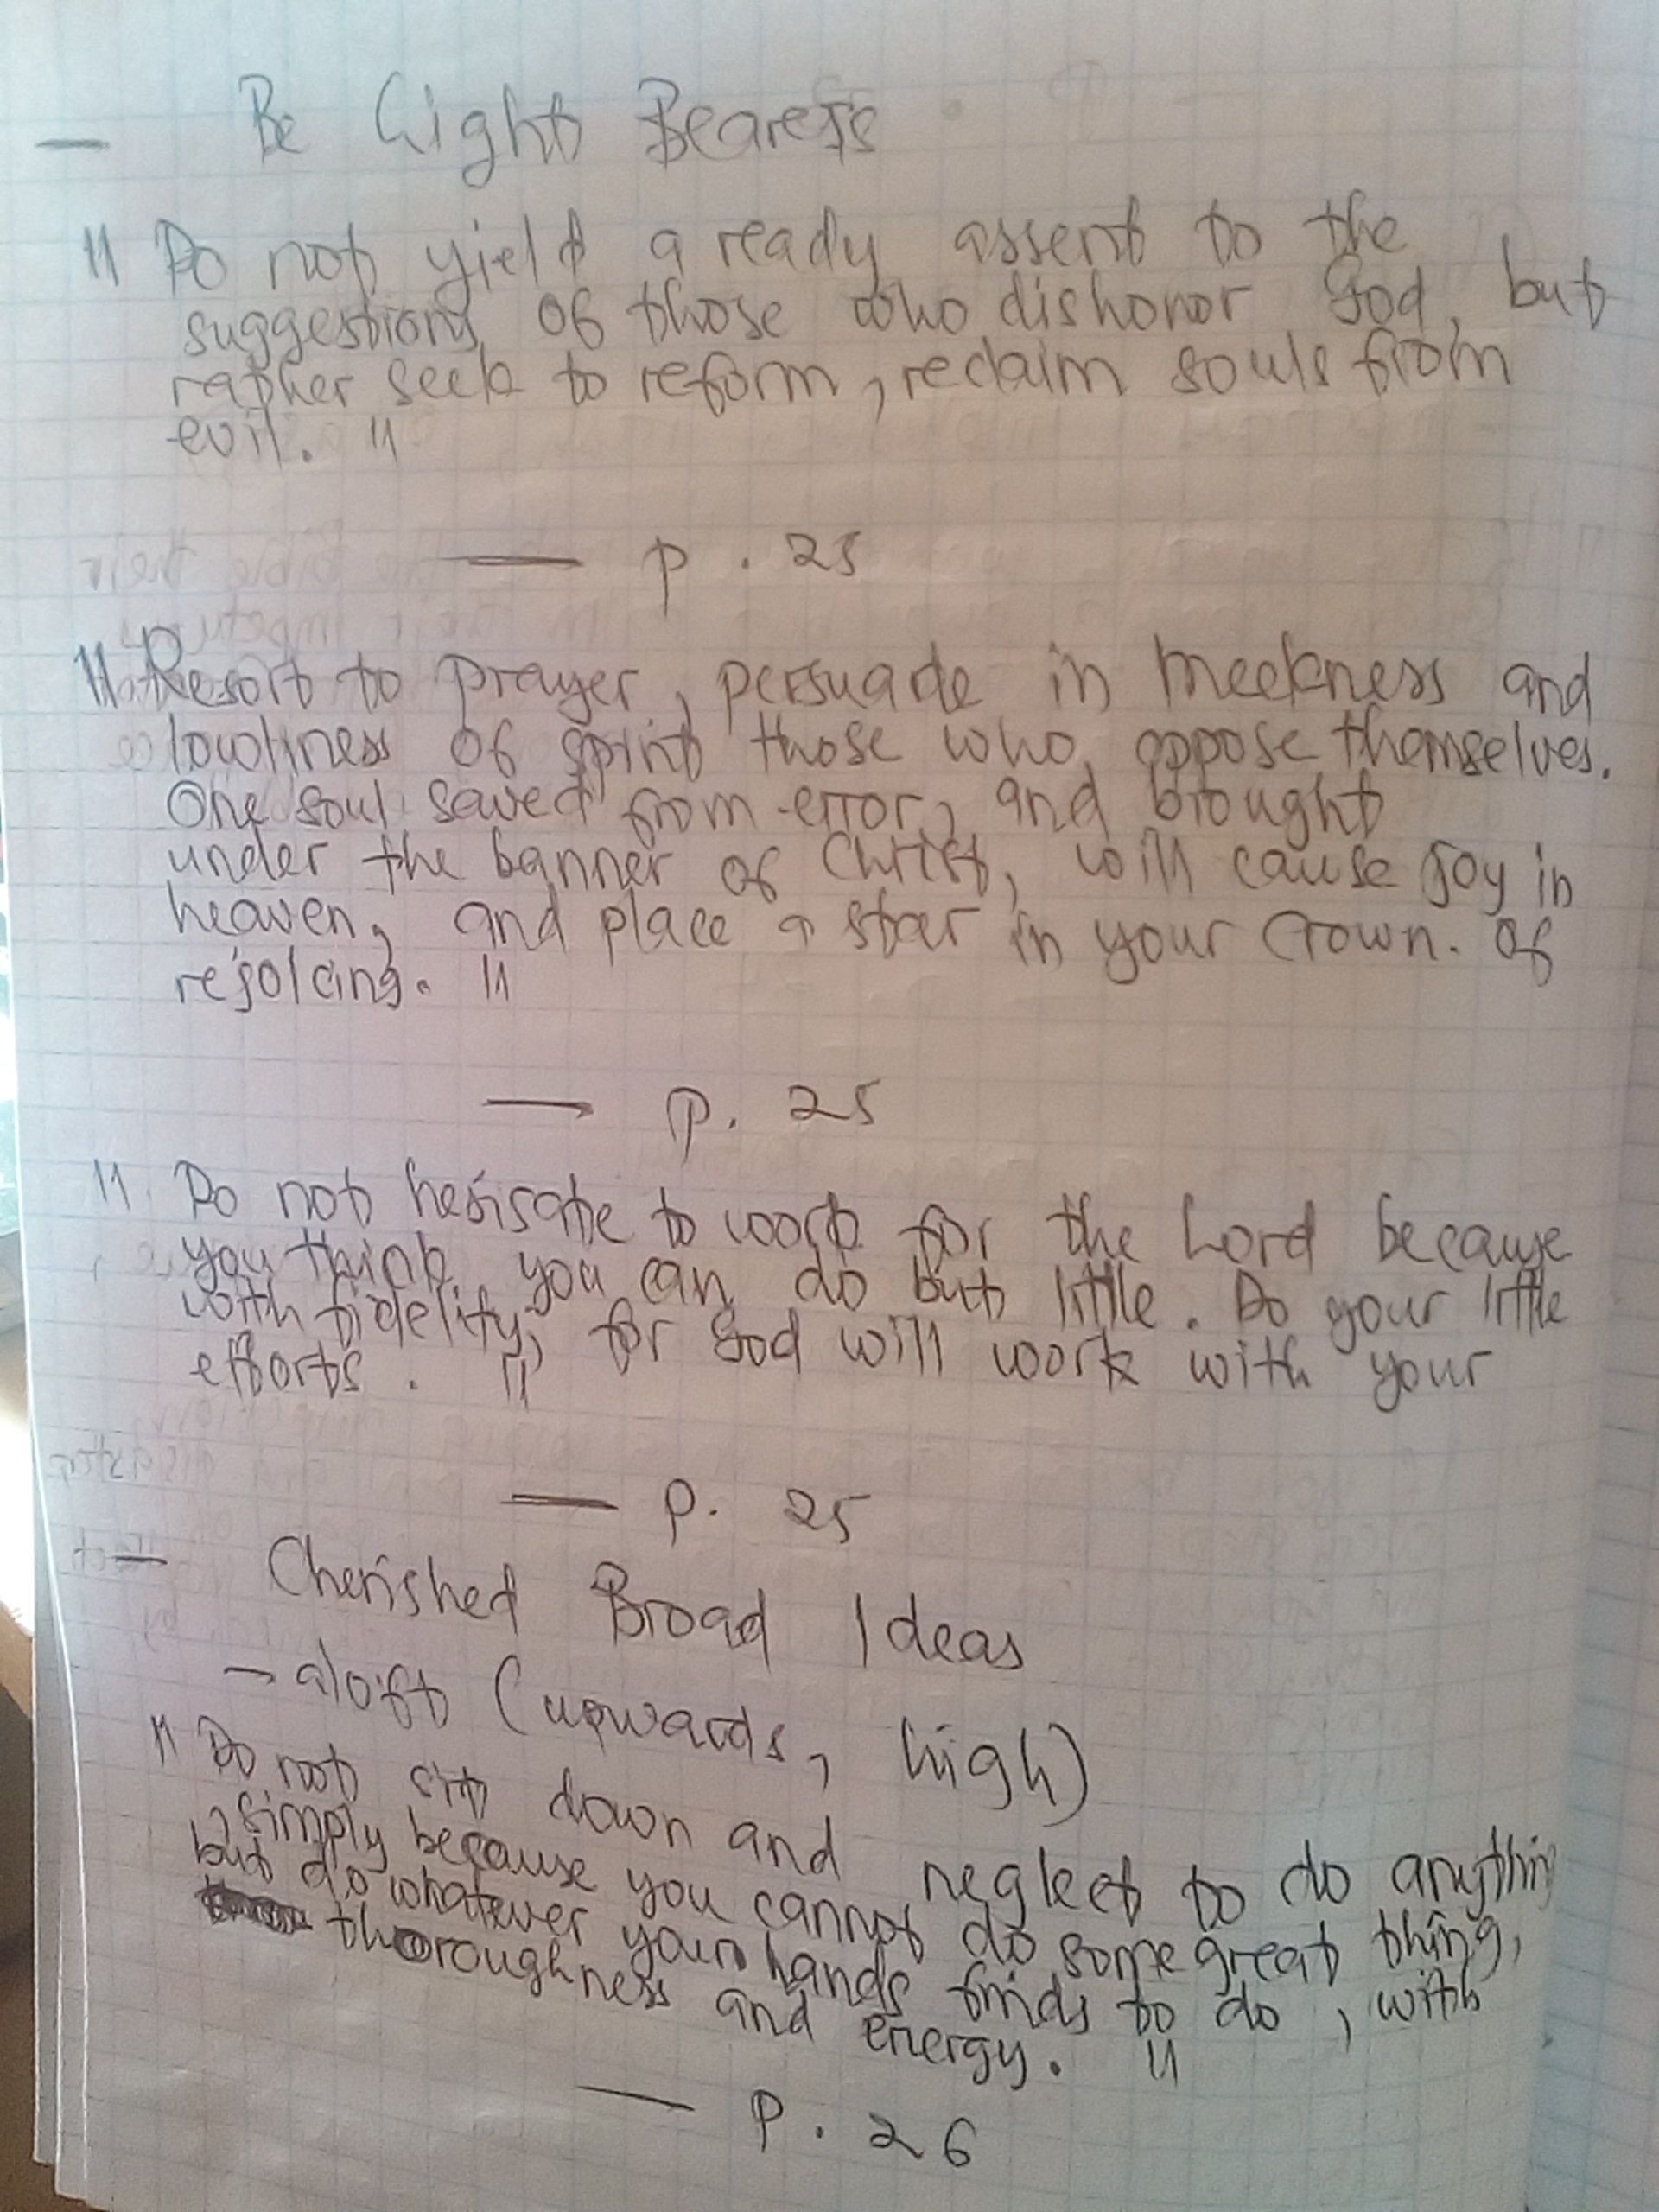 — Be Light Bearers
" Do not yield a ready assent to the
suggestions of those who dishonor God, but
rather seek to reform, reclaim souls from
evil. "
— p. 25
" Resort to prayer, persuade in meekness and
lowliness of spirit those who oppose themselves.
One soul saved from error, and brought
under the banner of Christ, will cause joy in
heaven, and place a star in your crown. of
rejoicing. "
— p. 25
" Do not hesisate to work for the Lord because
you think you can do but little. Do your little
with fidelity, for God will work with your
efforts. "
— p. 25
— Cherished Broad Ideas
- aloft (upwards, high)
" Do not sit down and neglect to do anything
, simply because you cannot do some great thing,
but do whatever your hands finds to do, with
thoroughness and energy. "
— p. 26